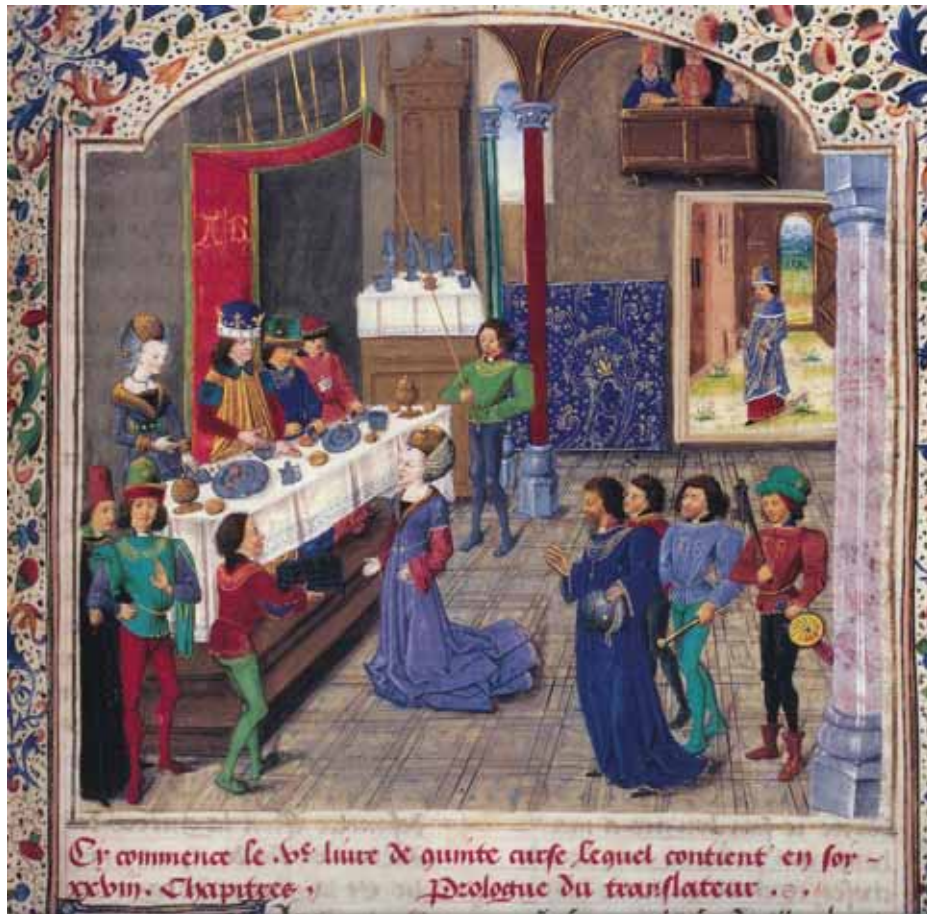 Cy commence le .ve. livre de quinte curse, lequel contient en soy –
xxviii. Chapitres. Prologue du translateur . . .